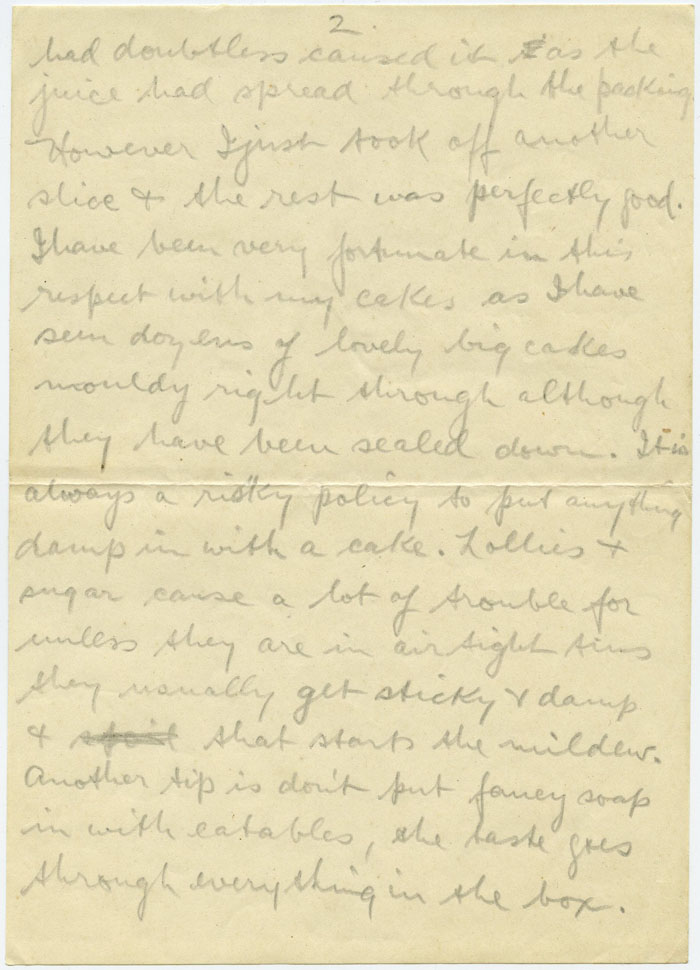 2
had doubtless caused it as the
juice had spread through the packing
However I just took off another
slice & the rest was perfectly good.
I have been very fortunate in this
respect with my cakes as I have
seen dozens of lovely big cakes
mouldy right through although
they have been sealed down. It is
always a risky policy to put anything
damp in with a cake. Lollies +
sugar cause a lot of trouble for
unless they are in air tight tins
they usually get sticky & damp
& that starts the mildew.
Another tip is don't put fancy soap
in with eatables, the taste goes
through everything in the box.